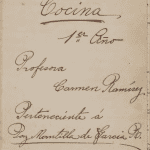 Cocina
1er Año
Profesora
Carmen Ramírez
Perteneciente á
Paz Montilla de García